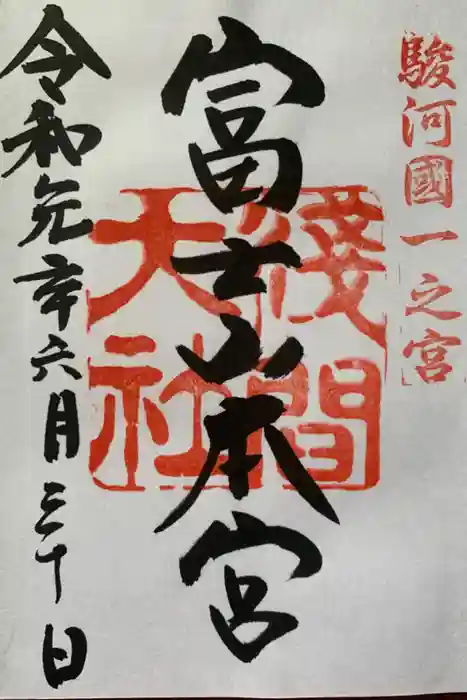 駿河國一之宮
富士山本宮
淺間
大社
令和元年六月三十日